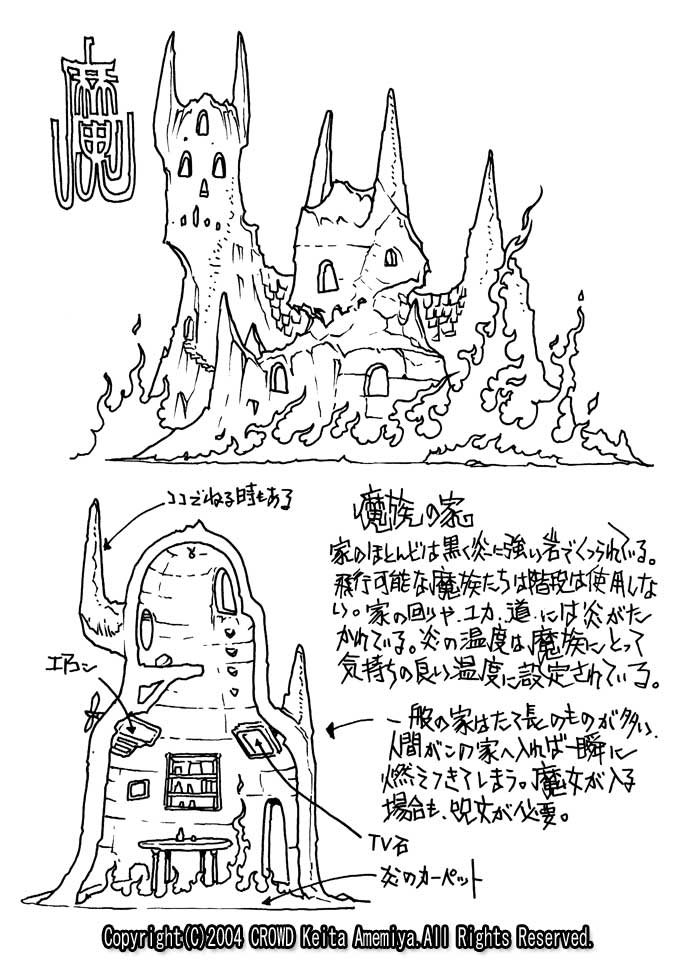 魔
ココでねる時もある
魔族の家
家のほとんどは黒く炎に強い岩でつくられている。
飛行可能な魔族たちは階段は使用しな
い。家の回りや、ユカ、道、には炎がた
かれている。炎の温度は魔族にとって
気持ちの良い温度に設定されている。
エアコン
一般の家はたて長のものが多い、
人間がこの家へ入れば一瞬に
燃えつきてしまう。魔女が入る
場合も、呪文が必要。
TV石
炎のカーペット
Copyright(C)2004 CROWD Keita Amemiya.All Rights Reserved.